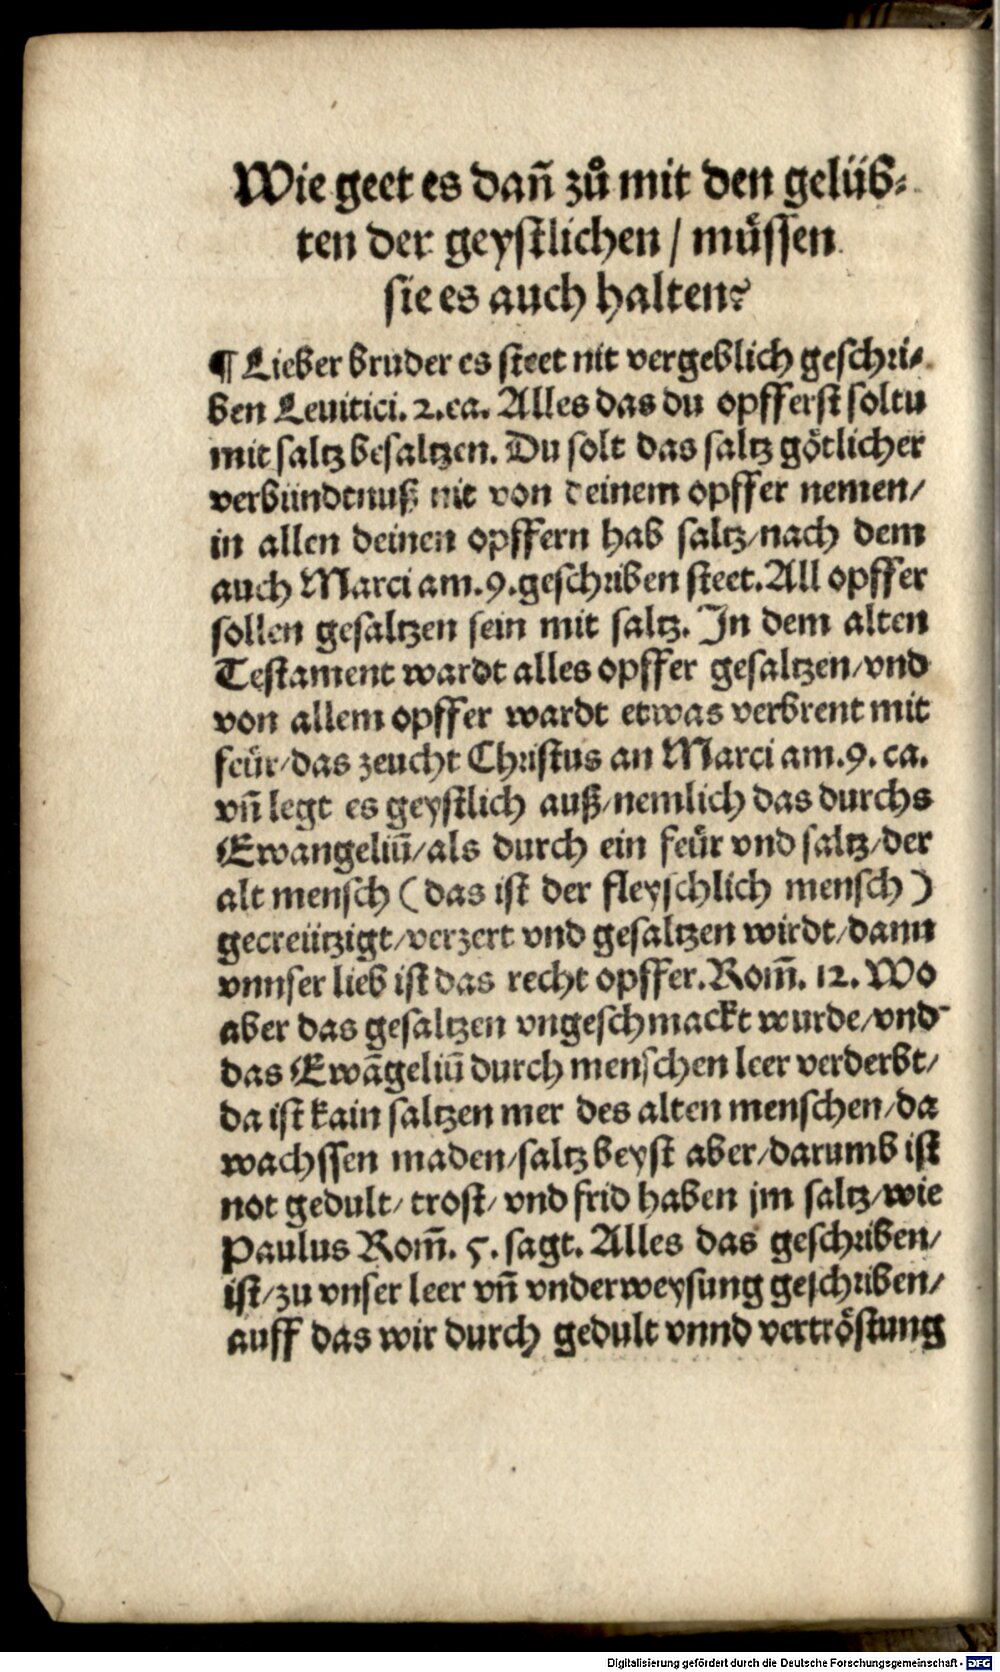 Wie geet es dañ zů mit den gelüb⸗
ten der geystlichen / müssen
sie es auch halten?
¶ Lieber bruder es steet nit vergeblich geschri⸗
ben Leuitici. 2. ca. Alles das du opfferst soltu
mit saltz besaltzen. Du solt das saltz götlicher
verbündtnuß nit von deinem opffer nemen/
in allen deinen opffern hab saltz/nach dem
auch Marci am. 9. geschriben steet. All opffer
sollen gesaltzen sein mit saltz. In dem alten
Testament wardt alles opffer gesaltzen/vnd
von allem opffer wardt etwas verbrent mit
feür/das zeucht Christus an Marci am. 9. ca.
vñ legt es geystlich auß/nemlich das durchs
Ewangeliū/als durch ein feür vnd saltz/der
alt mensch (das ist der fleyschlich mensch)
gecreützigt/verzert vnd gesaltzen wirdt/dann
vnnser lieb ist das recht opffer. Rom̄. 12. Wo
aber das gesaltzen vngeschmackt wurde/vnd
das Ewãgeliū durch menschen leer verderbt/
da ist kain saltzen mer des alten menschen/da
wachssen maden/saltz beyst aber/darumb ist
not gedult/ trost/ vnd frid haben jm saltz/wie
Paulus Rom̄. 5. sagt. Alles das geschriben/
ist/zu vnser leer vñ vnderweysung geschriben/
auff das wir durch gedult vnnd vertröstung
Digitalisierung gefördert durch die Deutsche Forschungsgemeinschaft - DFG